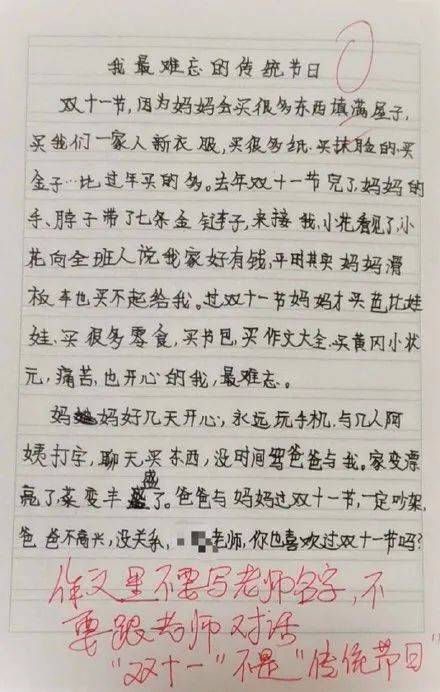 我最难忘的传统节日
双十一节,因为妈妈会买很多东西填满屋子,
买我们一家人新衣服,买很多纸、买抹脸的、买
金子…比过年买的多。去年双十一节完了,妈妈的
手、脖子带了七条金链子,来接我,小花看见了,小
花向全班人说我家好有钱,平时其实妈妈滑
板车也买不起给我。过双十一节妈妈才买芭比娃
娃、买很多零食,买书包,买作文大全、买黄冈小状
元,痛苦,也开心的我,最难忘。
妈妈好几天开心,永远玩手机,与几人阿
姨打字,聊天、买东西,没时间骂爸爸与我。家变漂
亮了,菜变丰盛了。爸爸与妈妈过双十一节,一定吵架,
爸爸不高兴,没关系,老师,你也喜欢过双十一节吗?
作文里不要写老师名字,不
要跟老师对话
"双十一"不是"传统节日"